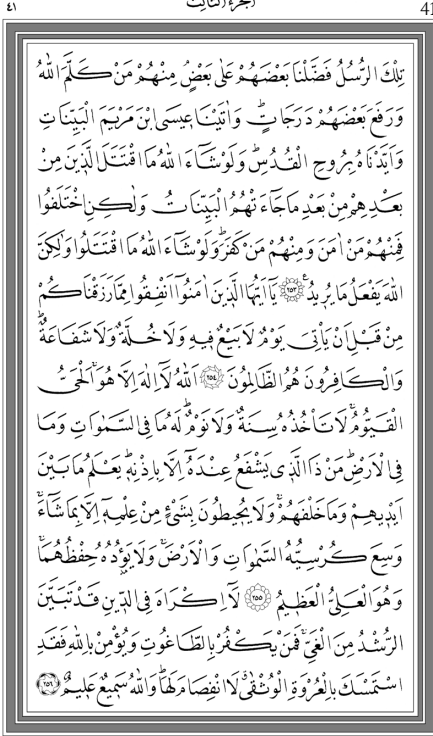 ٤١ الجزء الثالث 41
تِلْكَ الرُّسُلُ فَضَّلْنَا بَعْضَهُمْ عَلٰى بَعْضٍۢ مِنْهُمْ مَنْ كَلَّمَ اللّٰهُ
وَرَفَعَ بَعْضَهُمْ دَرَجَاتٍۜ وَاٰتَيْنَا عِيسَى ابْنَ مَرْيَمَ الْبَيِّنَاتِ
وَاَيَّدْنَاهُ بِرُوحِ الْقُدُسِۜ وَلَوْ شَٓاءَ اللّٰهُ مَا اقْتَتَلَ الَّذِينَ مِنْ
بَعْدِهِمْ مِنْ بَعْدِ مَا جَٓاءَتْهُمُ الْبَيِّنَاتُ وَلٰكِنِ اخْتَلَفُوا
فَمِنْهُمْ مَنْ اٰمَنَ وَمِنْهُمْ مَنْ كَفَرَۜ وَلَوْ شَٓاءَ اللّٰهُ مَا اقْتَتَلُوا وَلٰكِنَّ
اللّٰهَ يَفْعَلُ مَا يُرِيدُ۟ ﴿٢٥٣﴾ يَٓا اَيُّهَا الَّذِينَ اٰمَنُٓوا اَنْفِقُوا مِمَّا رَزَقْنَاكُمْ
مِنْ قَبْلِ اَنْ يَأْتِيَ يَوْمٌ لَا بَيْعٌ فِيهِ وَلَا خُلَّةٌ وَلَا شَفَاعَةٌۜ
وَالْكَافِرُونَ هُمُ الظَّالِمُونَ ﴿٢٥٤﴾ اَللّٰهُ لَٓا اِلٰهَ اِلَّا هُوَۚ اَلْحَيُّ
الْقَيُّومُۚ لَا تَأْخُذُهُ سِنَةٌ وَلَا نَوْمٌۜ لَهُ مَا فِي السَّمٰوَاتِ وَمَا
فِي الْاَرْضِۜ مَنْ ذَا الَّذِي يَشْفَعُ عِنْدَهُٓ اِلَّا بِاِذْنِهِۜ يَعْلَمُ مَا بَيْنَ
اَيْدِيهِمْ وَمَا خَلْفَهُمْۚ وَلَا يُحِيطُونَ بِشَيْءٍ مِنْ عِلْمِهِٓ اِلَّا بِمَا شَٓاءَۚ
وَسِعَ كُرْسِيُّهُ السَّمٰوَاتِ وَالْاَرْضَۚ وَلَا يَؤُ۫دُهُ حِفْظُهُمَاۚ
وَهُوَ الْعَلِيُّ الْعَظِيمُ ﴿٢٥٥﴾ لَٓا اِكْرَاهَ فِي الدِّينِ قَدْ تَبَيَّنَ
الرُّشْدُ مِنَ الْغَيِّۚ فَمَنْ يَكْفُرْ بِالطَّاغُوتِ وَيُؤْمِنْ بِاللّٰهِ فَقَدِ
اسْتَمْسَكَ بِالْعُرْوَةِ الْوُثْقٰىۗ لَا انْفِصَامَ لَهَاۜ وَاللّٰهُ سَمِيعٌ عَلِيمٌ ﴿٢٥٦﴾